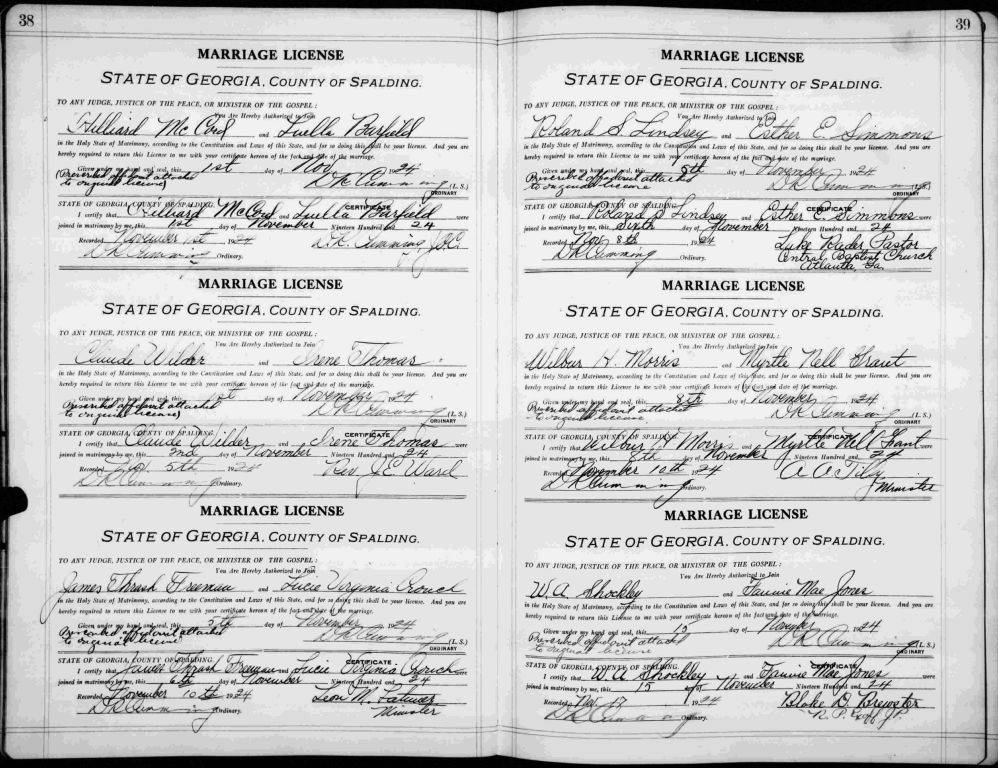 38
MARRIAGE LICENSE
STATE OF GEORGIA, COUNTY OF SPALDING.
TO ANY JUDGE, JUSTICE OF THE PEACE, OR MINISTER OF THE GOSPEL:
You Are Hereby Authorized to Join
Hilliard McCord and Luella Barfield
in the Holy State of Matrimony, according to the Constitution and Laws of this State, and for so doing this shall be your License. And you are
hereby required to return this License to me with your certificate hereon of the fact and date of the marriage.
Given under my hand and seal, this 1st day of Nov 1924
(Prescribed affidavit attached
to original license) D R Cumming (L. S.)
ORDINARY
STATE OF GEORGIA, COUNTY OF SPALDING. CERTIFICATE
I certify that Hilliard McCord and Luella Barfield were
joined in matrimony by me, this 1st day of November Nineteen Hundred and 24
Recorded November 1st 1924 D R Cumming
D R Cumming Ordinary.
MARRIAGE LICENSE
STATE OF GEORGIA, COUNTY OF SPALDING.
TO ANY JUDGE, JUSTICE OF THE PEACE, OR MINISTER OF THE GOSPEL:
You Are Hereby Authorized to Join
Claude Wilder and Irene Thomas
in the Holy State of Matrimony, according to the Constitution and Laws of this State, and for so doing this shall be your License. And you are
hereby required to return this License to me with your certificate hereon of the fact and date of the marriage.
Given under my hand and seal, this 1st day of November 1924
(Prescribed affidavit attached
to original license) D R Cumming (L. S.)
ORDINARY
STATE OF GEORGIA, COUNTY OF SPALDING. CERTIFICATE
I certify that Claude Wilder and Irene Thomas were
joined in matrimony by me, this 2nd day of November Nineteen Hundred and 24
Recorded Nov. 5th 1924 Rev J. E. Ward
D R Cumming Ordinary.
MARRIAGE LICENSE
STATE OF GEORGIA, COUNTY OF SPALDING.
TO ANY JUDGE, JUSTICE OF THE PEACE, OR MINISTER OF THE GOSPEL:
You Are Hereby Authorized to Join
James Thrash Freeman and Lucie Virginia Crouch
in the Holy State of Matrimony, according to the Constitution and Laws of this State, and for so doing this shall be your License. And you are
hereby required to return this License to me with your certificate hereon of the fact and date of the marriage.
Given under my hand and seal, this 5th day of November 1924
(Prescribed affidavit attached
to original license) D R Cumming (L. S.)
ORDINARY
STATE OF GEORGIA, COUNTY OF SPALDING. CERTIFICATE
I certify that James Thrash Freeman and Lucie Virginia Crouch were
joined in matrimony by me, this 6th day of November Nineteen Hundred and 24
Recorded November 10th 1924 Leon M. Latimer
D R Cumming Ordinary. Minister
39
MARRIAGE LICENSE
STATE OF GEORGIA, COUNTY OF SPALDING.
TO ANY JUDGE, JUSTICE OF THE PEACE, OR MINISTER OF THE GOSPEL:
You Are Hereby Authorized to Join
Roland S. Lindsey and Esther E. Simmons
in the Holy State of Matrimony, according to the Constitution and Laws of this State, and for so doing this shall be your License. And you are
hereby required to return this License to me with your certificate hereon of the fact and date of the marriage.
Given under my hand and seal, this day of November 1924
Prescribed affidavit attached
to original license D R Cumming (L. S.)
ORDINARY
STATE OF GEORGIA, COUNTY OF SPALDING. CERTIFICATE
I certify that Roland S Lindsey and Esther E. Simmons were
joined in matrimony by me, this day of November Nineteen Hundred and 24
Recorded Nov 8th 1924 Luke Rader Pastor
D R Cumming Ordinary. Central Baptist Church
Atlanta Ga.
MARRIAGE LICENSE
STATE OF GEORGIA, COUNTY OF SPALDING.
TO ANY JUDGE, JUSTICE OF THE PEACE, OR MINISTER OF THE GOSPEL:
You Are Hereby Authorized to Join
Wilbur H. Morris and Myrtle Nell Grant
in the Holy State of Matrimony, according to the Constitution and Laws of this State, and for so doing this shall be your License. And you are
hereby required to return this License to me with your certificate hereon of the fact and date of the marriage.
Given under my hand and seal, this 8th day of November 1924
Prescribed affidavit attached
to original license D R Cumming (L. S.)
ORDINARY
STATE OF GEORGIA, COUNTY OF SPALDING. CERTIFICATE
I certify that Wilbur H. Morris and Myrtle Nell Grant were
joined in matrimony by me, this 8th day of November Nineteen Hundred and 24
Recorded November 10th 1924 A. O.
D R Cumming Ordinary. Minister
MARRIAGE LICENSE
STATE OF GEORGIA, COUNTY OF SPALDING.
TO ANY JUDGE, JUSTICE OF THE PEACE, OR MINISTER OF THE GOSPEL:
You Are Hereby Authorized to Join
W. A Shockley and Fannie Mae Jones
in the Holy State of Matrimony, according to the Constitution and Laws of this State, and for so doing this shall be your License. And you are
hereby required to return this License to me with your certificate hereon of the fact and date of the marriage.
Given under my hand and seal, this 15 day of November 1924
Prescribed affidavit attached
to original license D R Cumming (L. S.)
ORDINARY
STATE OF GEORGIA, COUNTY OF SPALDING. CERTIFICATE
I certify that W. A Shockley and Fannie Mae Jones were
joined in matrimony by me, this 15 day of November Nineteen Hundred and 24
Recorded Nov 1924 Blake D. Brewster
D R Cumming Ordinary. N. P. J.P.